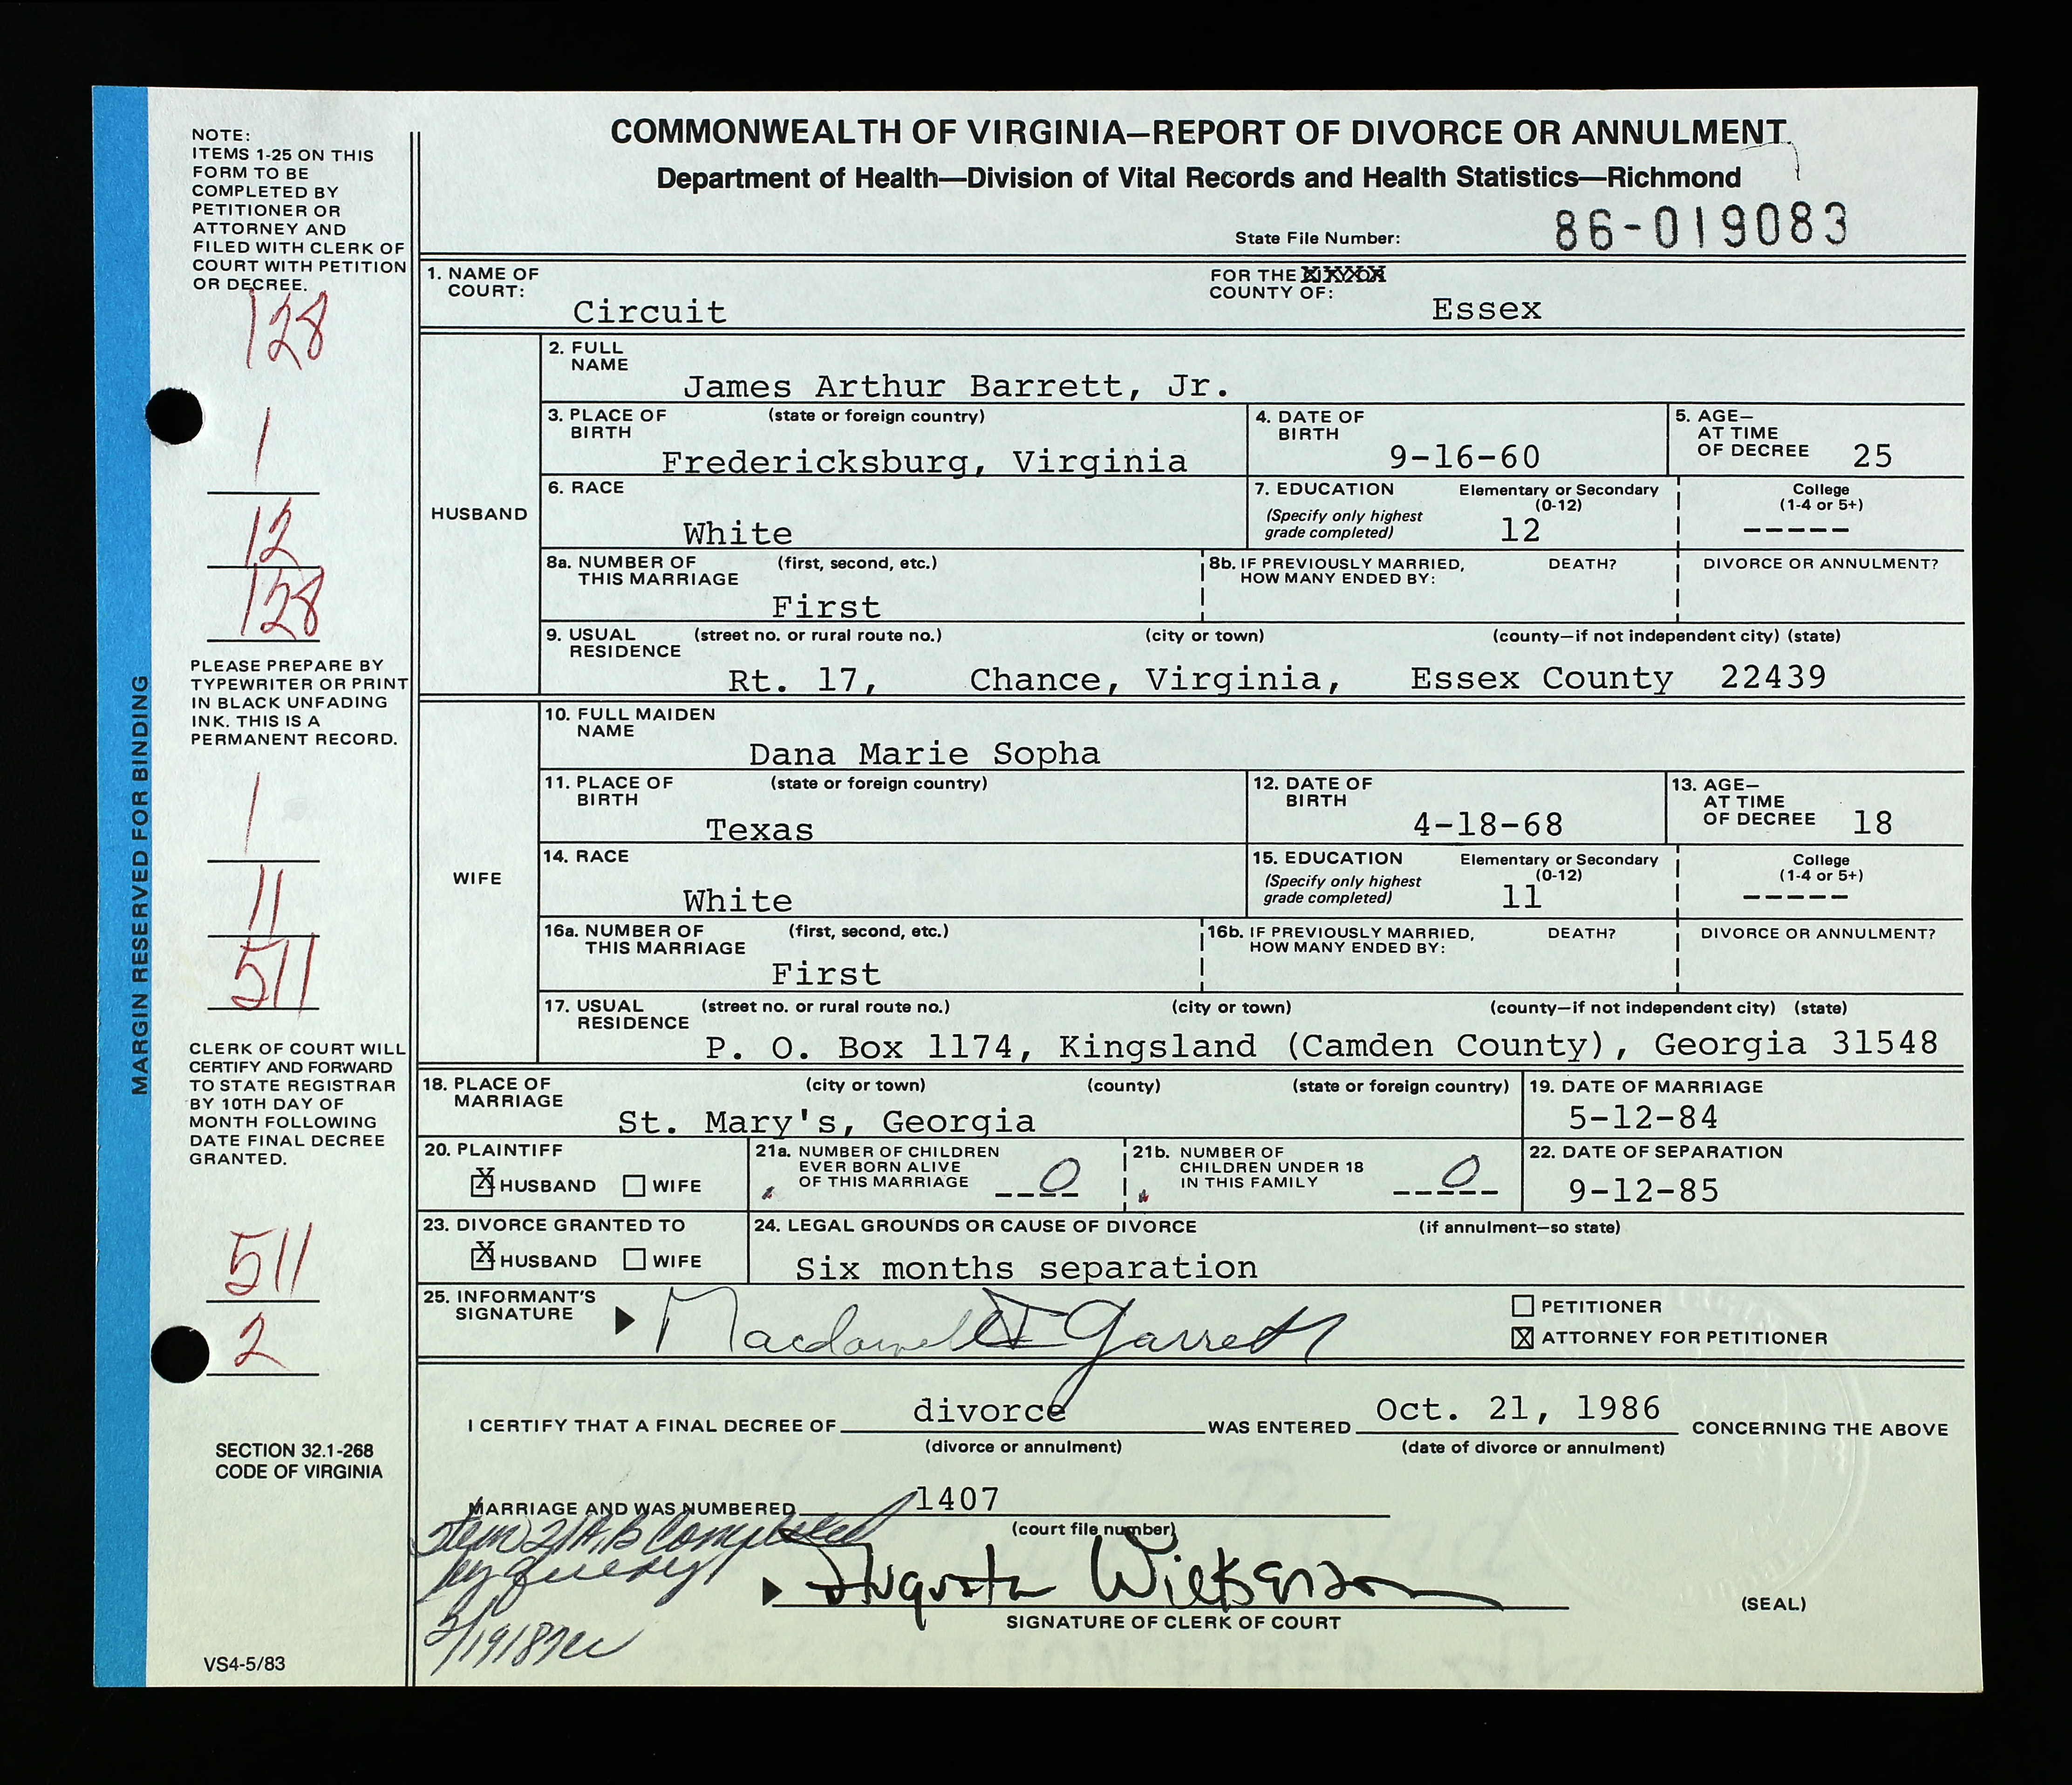 COMMONWEALTH OF VIRGINIA—REPORT OF DIVORCE OR ANNULMENT
Department of Health—Division of Vital Records and Health Statistics—Richmond
State File Number: 86-019083
NOTE:
ITEMS 1-25 ON THIS
FORM TO BE
COMPLETED BY
PETITIONER OR
ATTORNEY AND
FILED WITH CLERK OF
COURT WITH PETITION
OR DECREE.
128
1
12
128
PLEASE PREPARE BY
TYPEWRITER OR PRINT
IN BLACK UNFADING
INK. THIS IS A
PERMANENT RECORD.
1
11
511
CLERK OF COURT WILL
CERTIFY AND FORWARD
TO STATE REGISTRAR
BY 10TH DAY OF
MONTH FOLLOWING
DATE FINAL DECREE
GRANTED.
511
2
SECTION 32.1-268
CODE OF VIRGINIA
VS4-5/83
MARGIN RESERVED FOR BINDING
1. NAME OF COURT: Circuit
FOR THE COUNTY OF: Essex
HUSBAND
2. FULL NAME James Arthur Barrett, Jr.
3. PLACE OF BIRTH (state or foreign country) Fredericksburg, Virginia
4. DATE OF BIRTH 9-16-60
5. AGE— AT TIME OF DECREE 25
6. RACE White
7. EDUCATION (Specify only highest grade completed) Elementary or Secondary (0-12) 12
College (1-4 or 5+) -----
8a. NUMBER OF THIS MARRIAGE (first, second, etc.) First
8b. IF PREVIOUSLY MARRIED, HOW MANY ENDED BY: DEATH? DIVORCE OR ANNULMENT?
9. USUAL RESIDENCE (street no. or rural route no.) (city or town) (county—if not independent city) (state)
Rt. 17, Chance, Virginia, Essex County 22439
WIFE
10. FULL MAIDEN NAME Dana Marie Sopha
11. PLACE OF BIRTH (state or foreign country) Texas
12. DATE OF BIRTH 4-18-68
13. AGE— AT TIME OF DECREE 18
14. RACE White
15. EDUCATION (Specify only highest grade completed) Elementary or Secondary (0-12) 11
College (1-4 or 5+) -----
16a. NUMBER OF THIS MARRIAGE (first, second, etc.) First
16b. IF PREVIOUSLY MARRIED, HOW MANY ENDED BY: DEATH? DIVORCE OR ANNULMENT?
17. USUAL RESIDENCE (street no. or rural route no.) (city or town) (county—if not independent city) (state)
P. O. Box 1174, Kingsland (Camden County), Georgia 31548
18. PLACE OF MARRIAGE (city or town) (county) (state or foreign country) St. Mary's, Georgia
19. DATE OF MARRIAGE 5-12-84
20. PLAINTIFF X HUSBAND WIFE
21a. NUMBER OF CHILDREN EVER BORN ALIVE OF THIS MARRIAGE 0
21b. NUMBER OF CHILDREN UNDER 18 IN THIS FAMILY 0
22. DATE OF SEPARATION 9-12-85
23. DIVORCE GRANTED TO X HUSBAND WIFE
24. LEGAL GROUNDS OR CAUSE OF DIVORCE (if annulment—so state) Six months separation
25. INFORMANT'S SIGNATURE Garrett
PETITIONER
X ATTORNEY FOR PETITIONER
I CERTIFY THAT A FINAL DECREE OF divorce WAS ENTERED Oct. 21, 1986 CONCERNING THE ABOVE
(divorce or annulment) (date of divorce or annulment)
MARRIAGE AND WAS NUMBERED 1407
(court file number)
Item 21A.B Completed
by query
Augusta Wilkerson
SIGNATURE OF CLERK OF COURT
(SEAL)